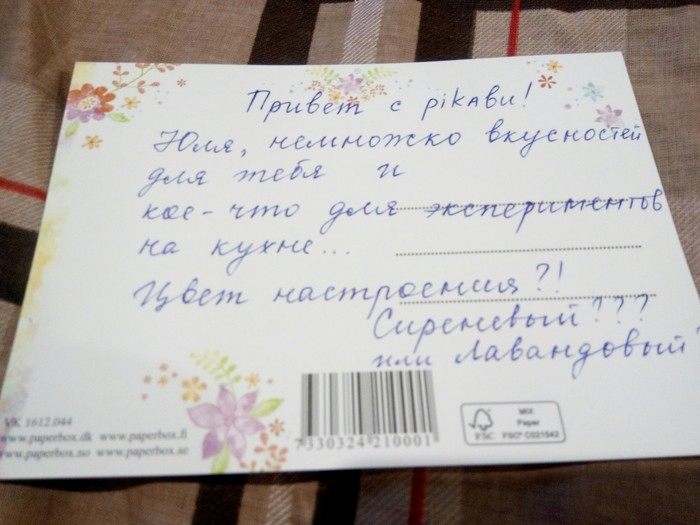 Привет с pikаби!
Юля, немножко вкусностей
для тебя и
кое-что для экспериментов
на кухне...
Цвет настроения?!
Сиреневый???
или Лавандовый?
VK 1612.044
www.paperbox.dk www.paperbox.fi
www.paperbox.no www.paperbox.se
7 330324 210001
FSC
MIX
Paper
FSC® C021542